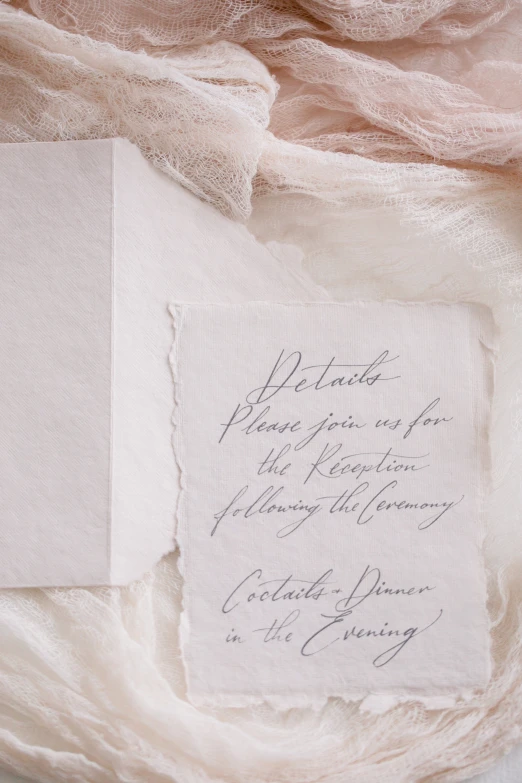 Details
Please join us for
the Reception
following the Ceremony
Coctails - Dinner
in the Evening